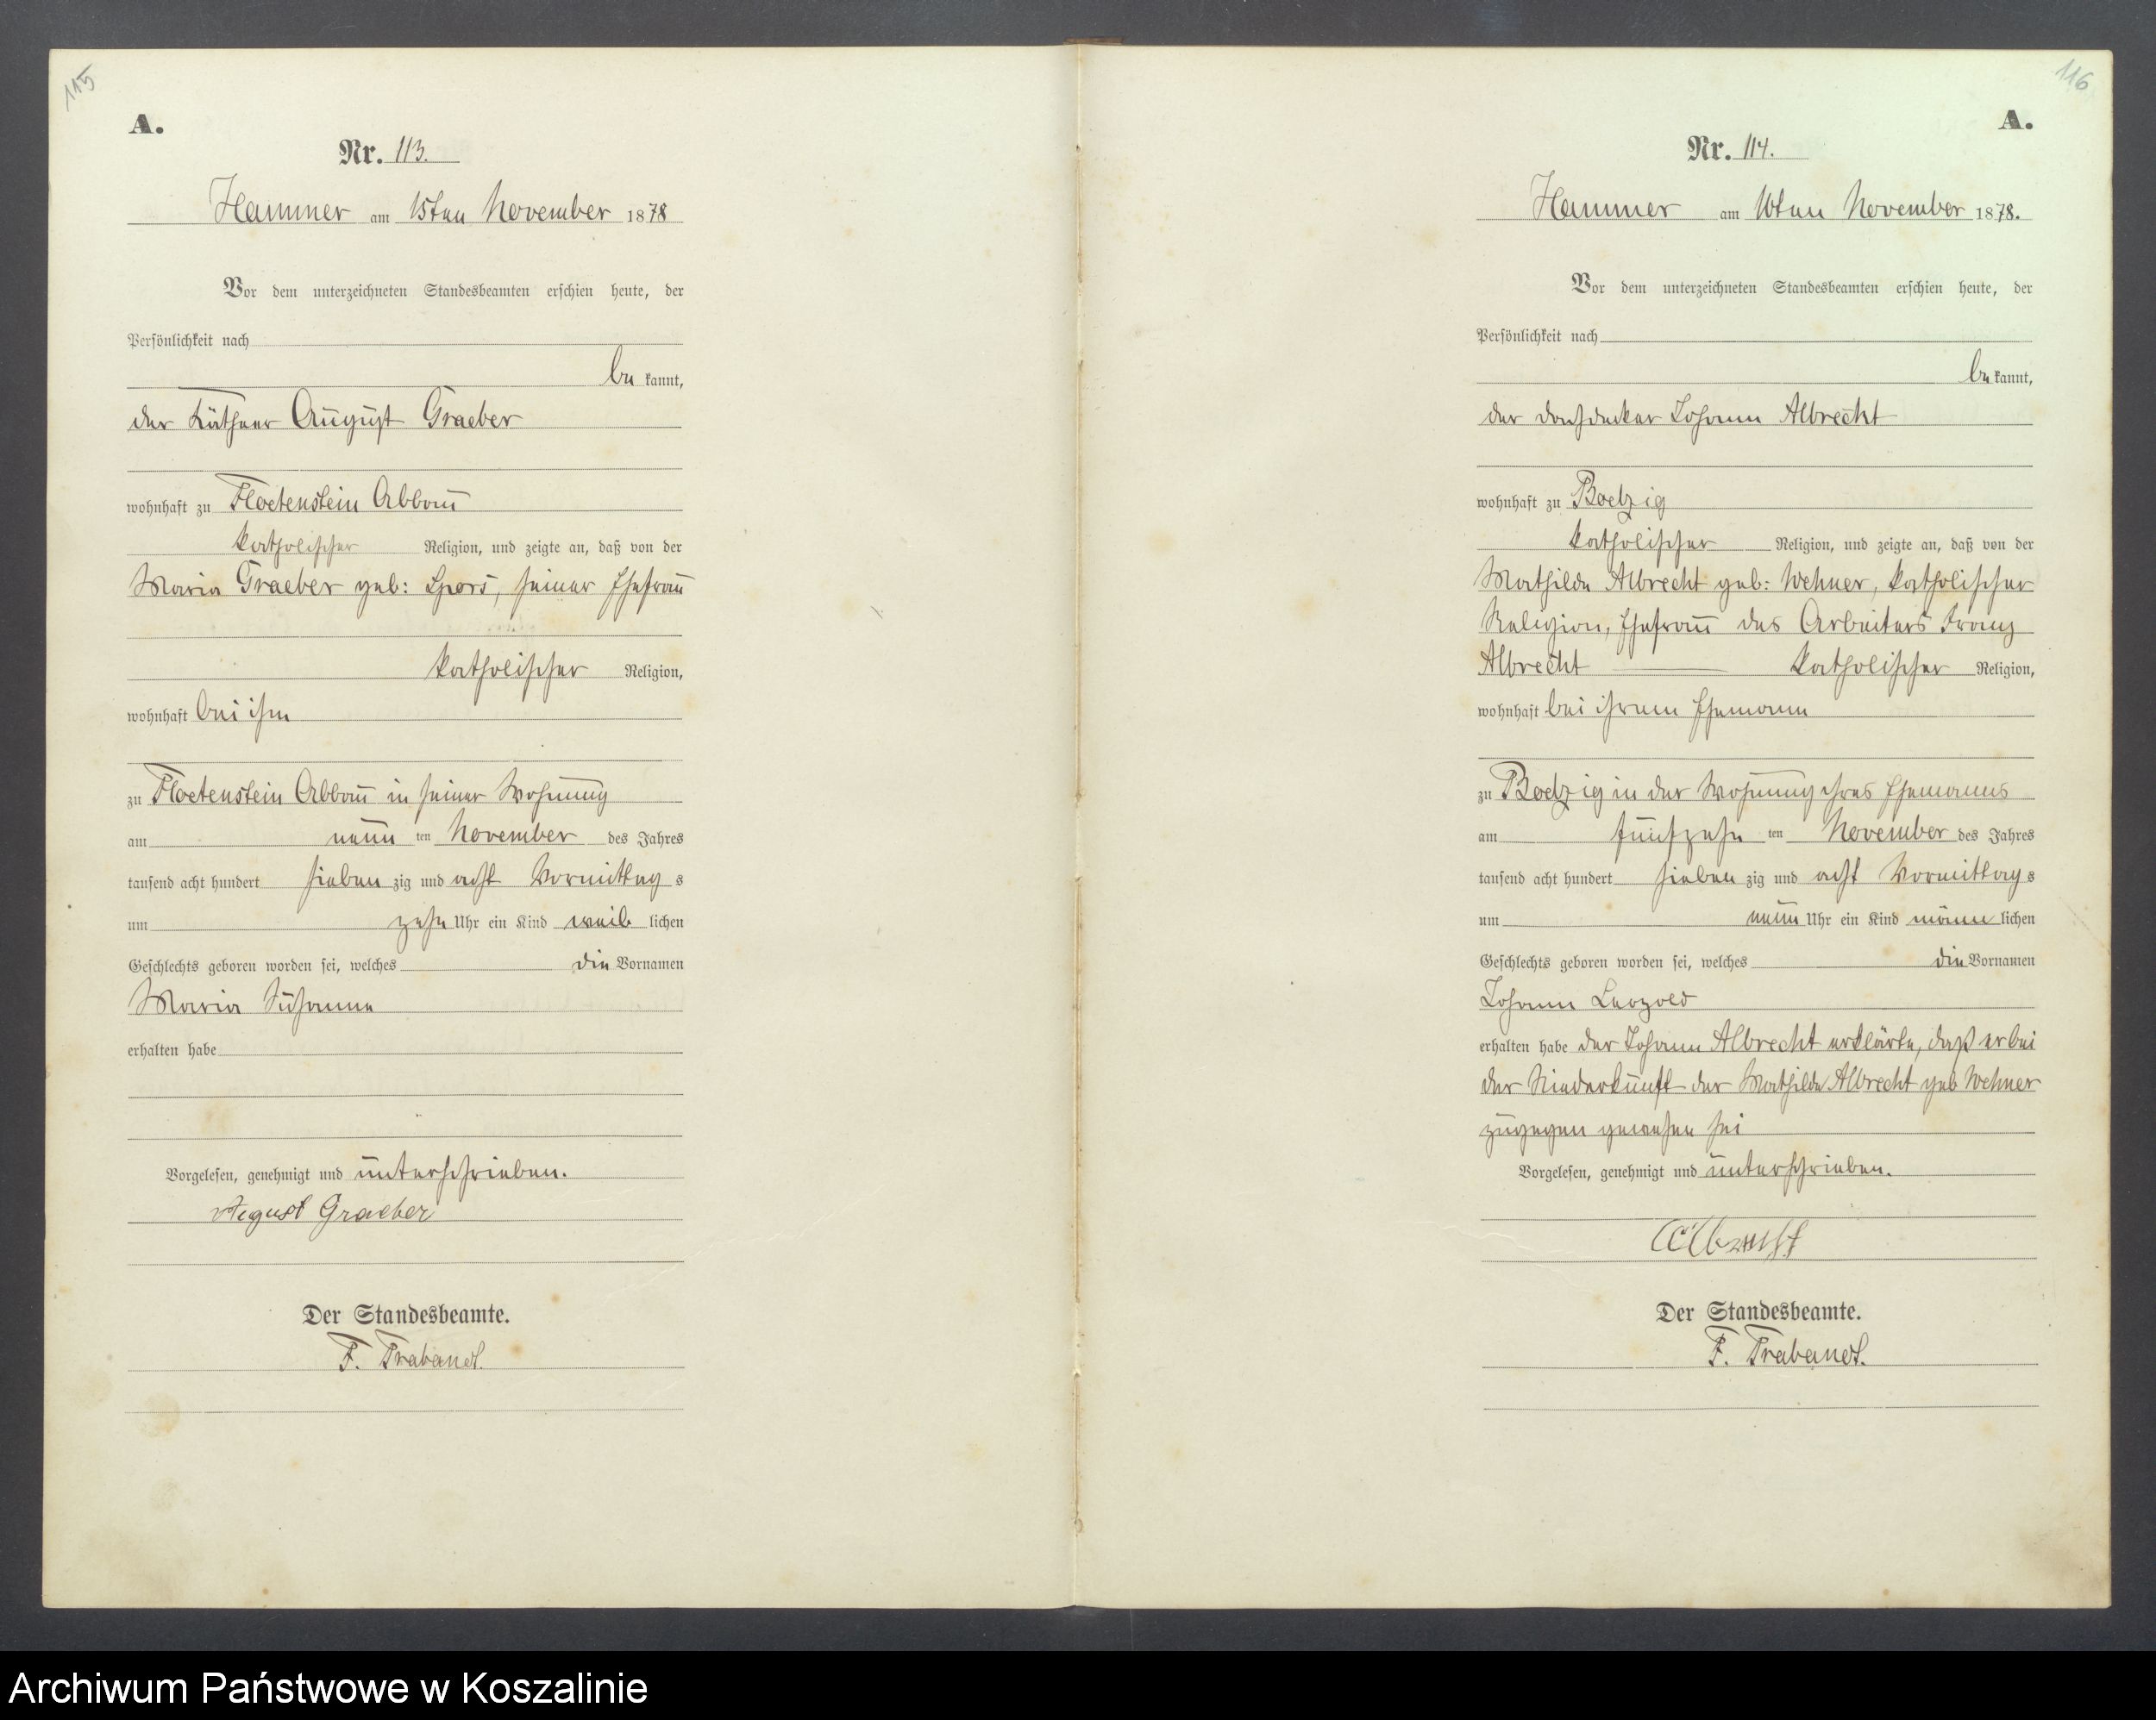 115
A.
Nr. 113.
Hammer am 15ten November 1878
Vor dem unterzeichneten Standesbeamten erschien heute, der
Persönlichkeit nach
be kannt,
der Käthner August Graeber
wohnhaft zu Floetenstein Abbau
katholischer Religion, und zeigte an, daß von der
Maria Graeber geb: Spors, seiner Ehefrau
katholischer Religion,
wohnhaft bei ihm
zu Floetenstein Abbau in seiner Wohnung
am neun ten November des Jahres
tausend acht hundert sieben zig und acht Vormittag s
um zehn Uhr ein Kind weib lichen
Geschlechts geboren worden sei, welches die Vornamen
Maria Susanna
erhalten habe
Vorgelesen, genehmigt und unterschrieben.
August Graeber
Der Standesbeamte.
F. Trabandt.
116
A.
Nr. 114.
Hammer am November 1878.
Vor dem unterzeichneten Standesbeamten erschien heute, der
Persönlichkeit nach
be kannt,
der Dachdecker Johann Albrecht
wohnhaft zu Boelzig
katholischer Religion, und zeigte an, daß von der
Mathilde Albrecht geb: Wehner, katholischer
Religion, Ehefrau des Arbeiters Franz
Albrecht katholischer Religion,
wohnhaft bei ihrem Ehemann
zu Boelzig in der Wohnung ihres Ehemannes
am fünfzehn ten November des Jahres
tausend acht hundert sieben zig und acht Vormittag s
um neun Uhr ein Kind männ lichen
Geschlechts geboren worden sei, welches die Vornamen
Johann Leopold
erhalten habe der Johann Albrecht erklärte, daß er bei
der Niederkunft der Mathilde Albrecht geb Wehner
zugegen gewesen sei
Vorgelesen, genehmigt und unterschrieben.
Albrecht
Der Standesbeamte.
F. Trabandt.
Archiwum Państwowe w Koszalinie